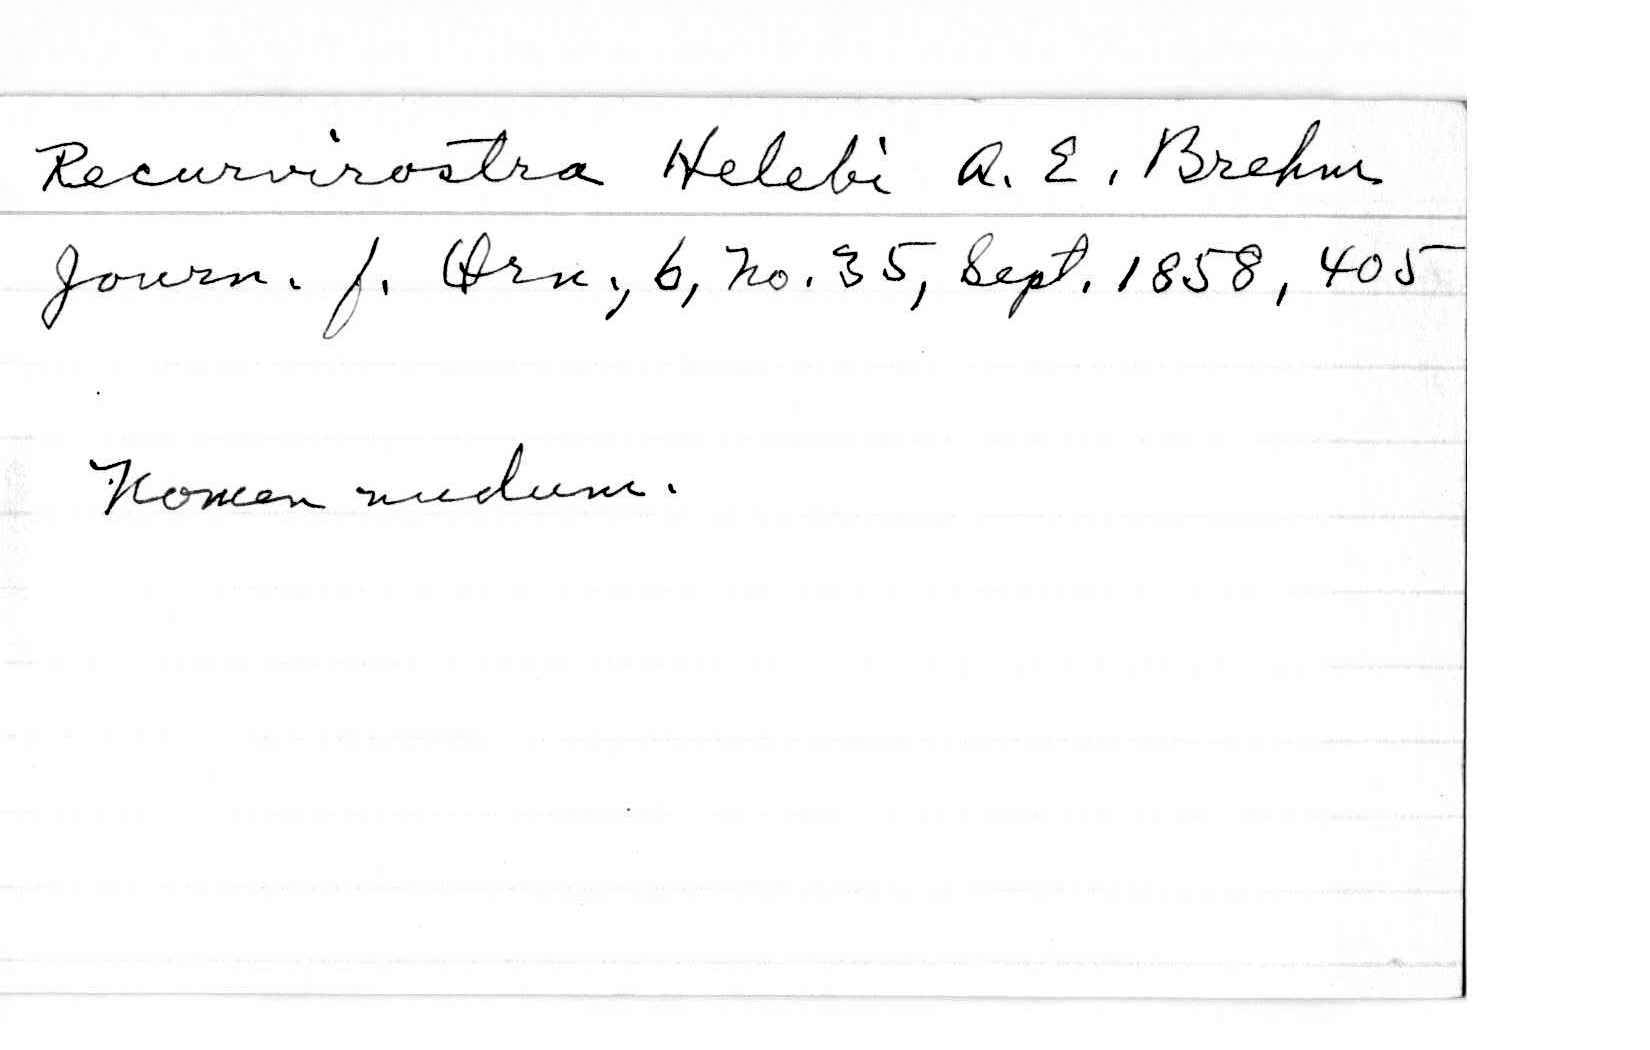 Recurvirostra Helebi A. E. Brehm
Journ. f. Orn., 6, No. 35, Sept. 1858, 405
Nomen nudum.